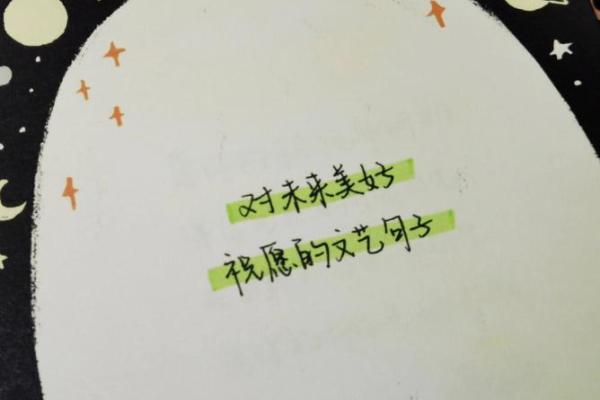 对未来美好
祝愿的文艺句子